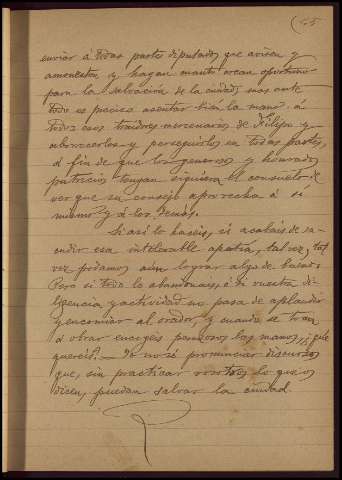 (45
enviar á todas partes diputados que avisen y
amonesten, y hagan cuanto crean oportuno
para la salvación de la ciudad; mas ante
todo se precisa asentar bien la mano á
todos esos traidores mercenarios de Filipo y
aborrecerlos y perseguirlos en todas partes,
á fin de que los generosos y honrados
patricios tengan siquiera el consuelo de
ver que su consejo aprovecha á sí
mismo y á los demás.
Si así lo hacéis, si acabáis de sa-
cudir esa intolerable apatía, tal vez, tal
vez podamos aún lograr algo de bueno.
Pero si todo lo abandonáis, si vuestra di-
ligencia y actividad no pasa de aplaudir
y encomiar al orador, y cuando se trata
de obrar encogéis perezosos las manos, ¿qué
queréis? — Yo no sé pronunciar discursos
que, sin practicar vosotros lo que os
dicen, puedan salvar la ciudad.